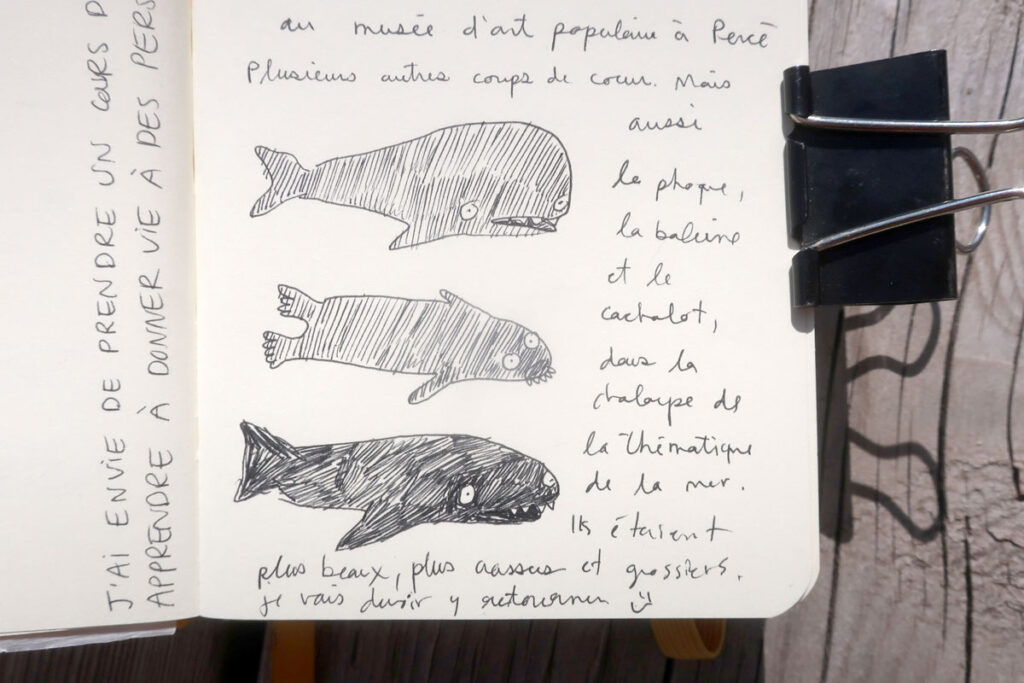 J'AI ENVIE DE PRENDRE UN COURS
APPRENDRE À DONNER VIE À DES
au musée d'art populaire à Percé
Plusieurs autres coups de coeur. Mais
aussi
le phoque,
la baleine
et le
cachalot,
dans la
chaloupe de
la thématique
de la mer.
Ils étaient
plus beaux, plus et grossiers.
je vais devoir y retourner